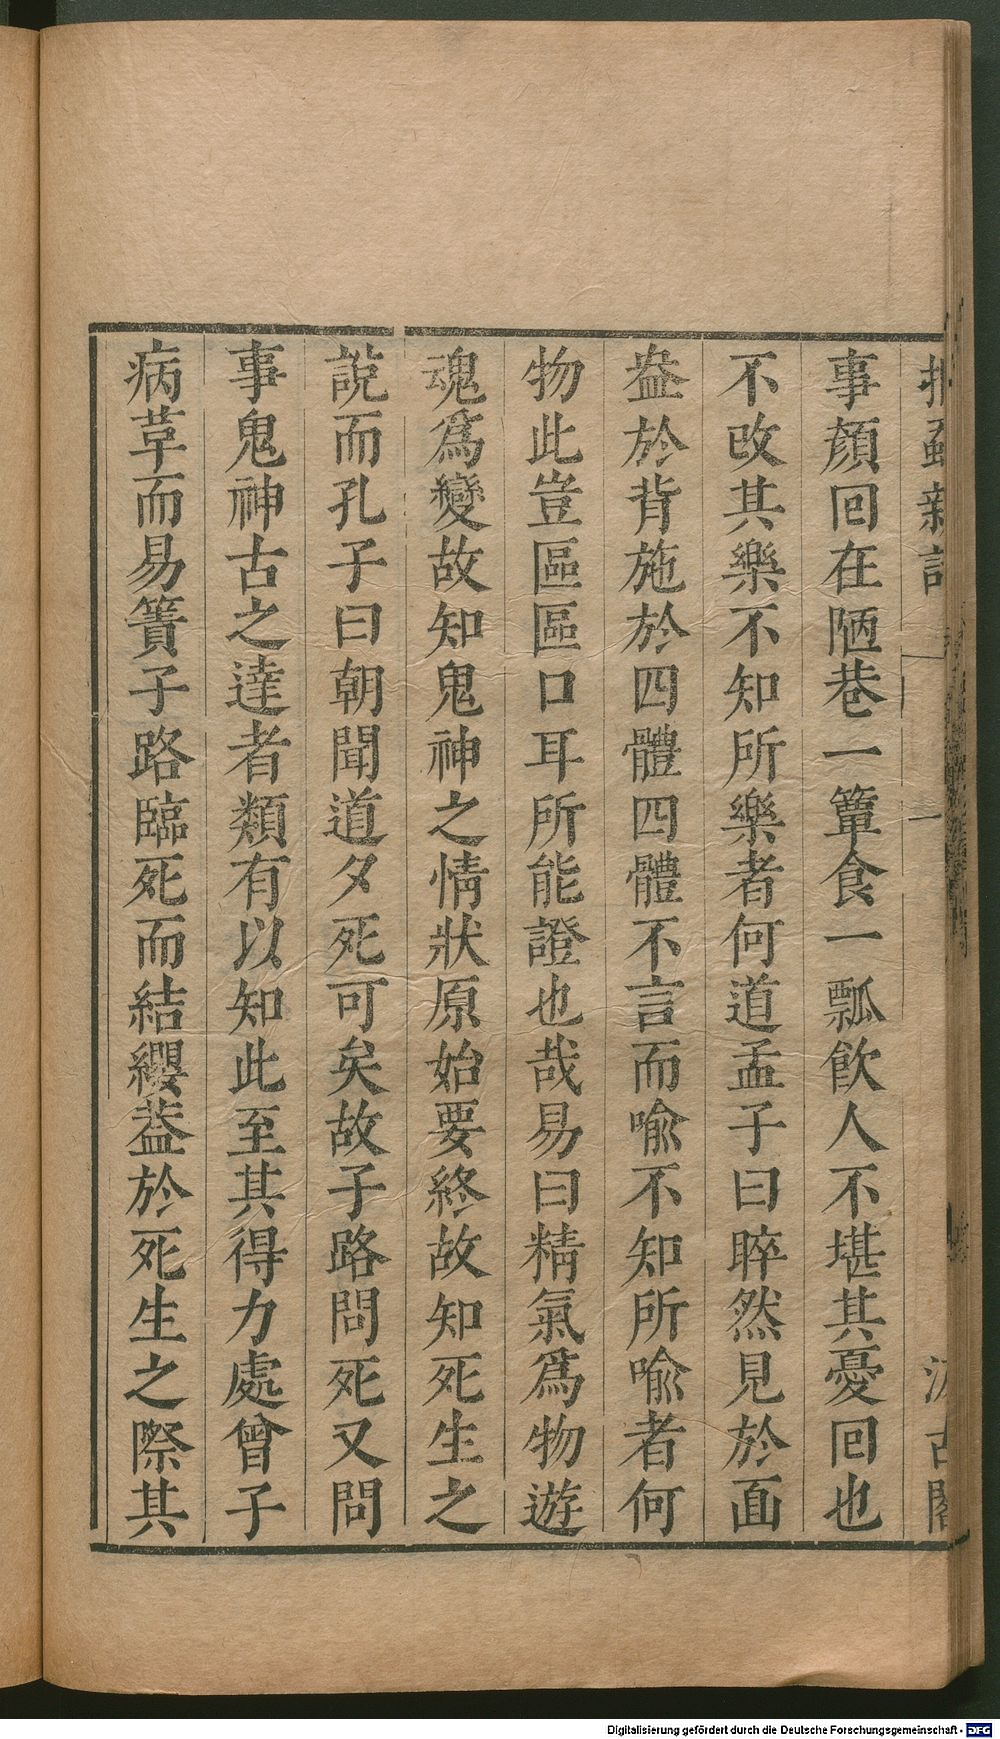 捫蝨新話 卷一 二 汲古閣
事顏回在陋巷一簞食一瓢飲人不堪其憂回也
不改其樂不知所樂者何道孟子曰睟然見於面
盎於背施於四體四體不言而喻不知所喻者何
物此豈區區口耳所能證也哉易曰精氣爲物遊
魂爲變故知鬼神之情狀原始要終故知死生之
說而孔子曰朝聞道夕死可矣故子路問死又問
事鬼神古之達者類有以知此至其得力處曾子
病革而易簀子路臨死而結纓葢於死生之際其
Digitalisierung gefördert durch die Deutsche Forschungsgemeinschaft - DFG